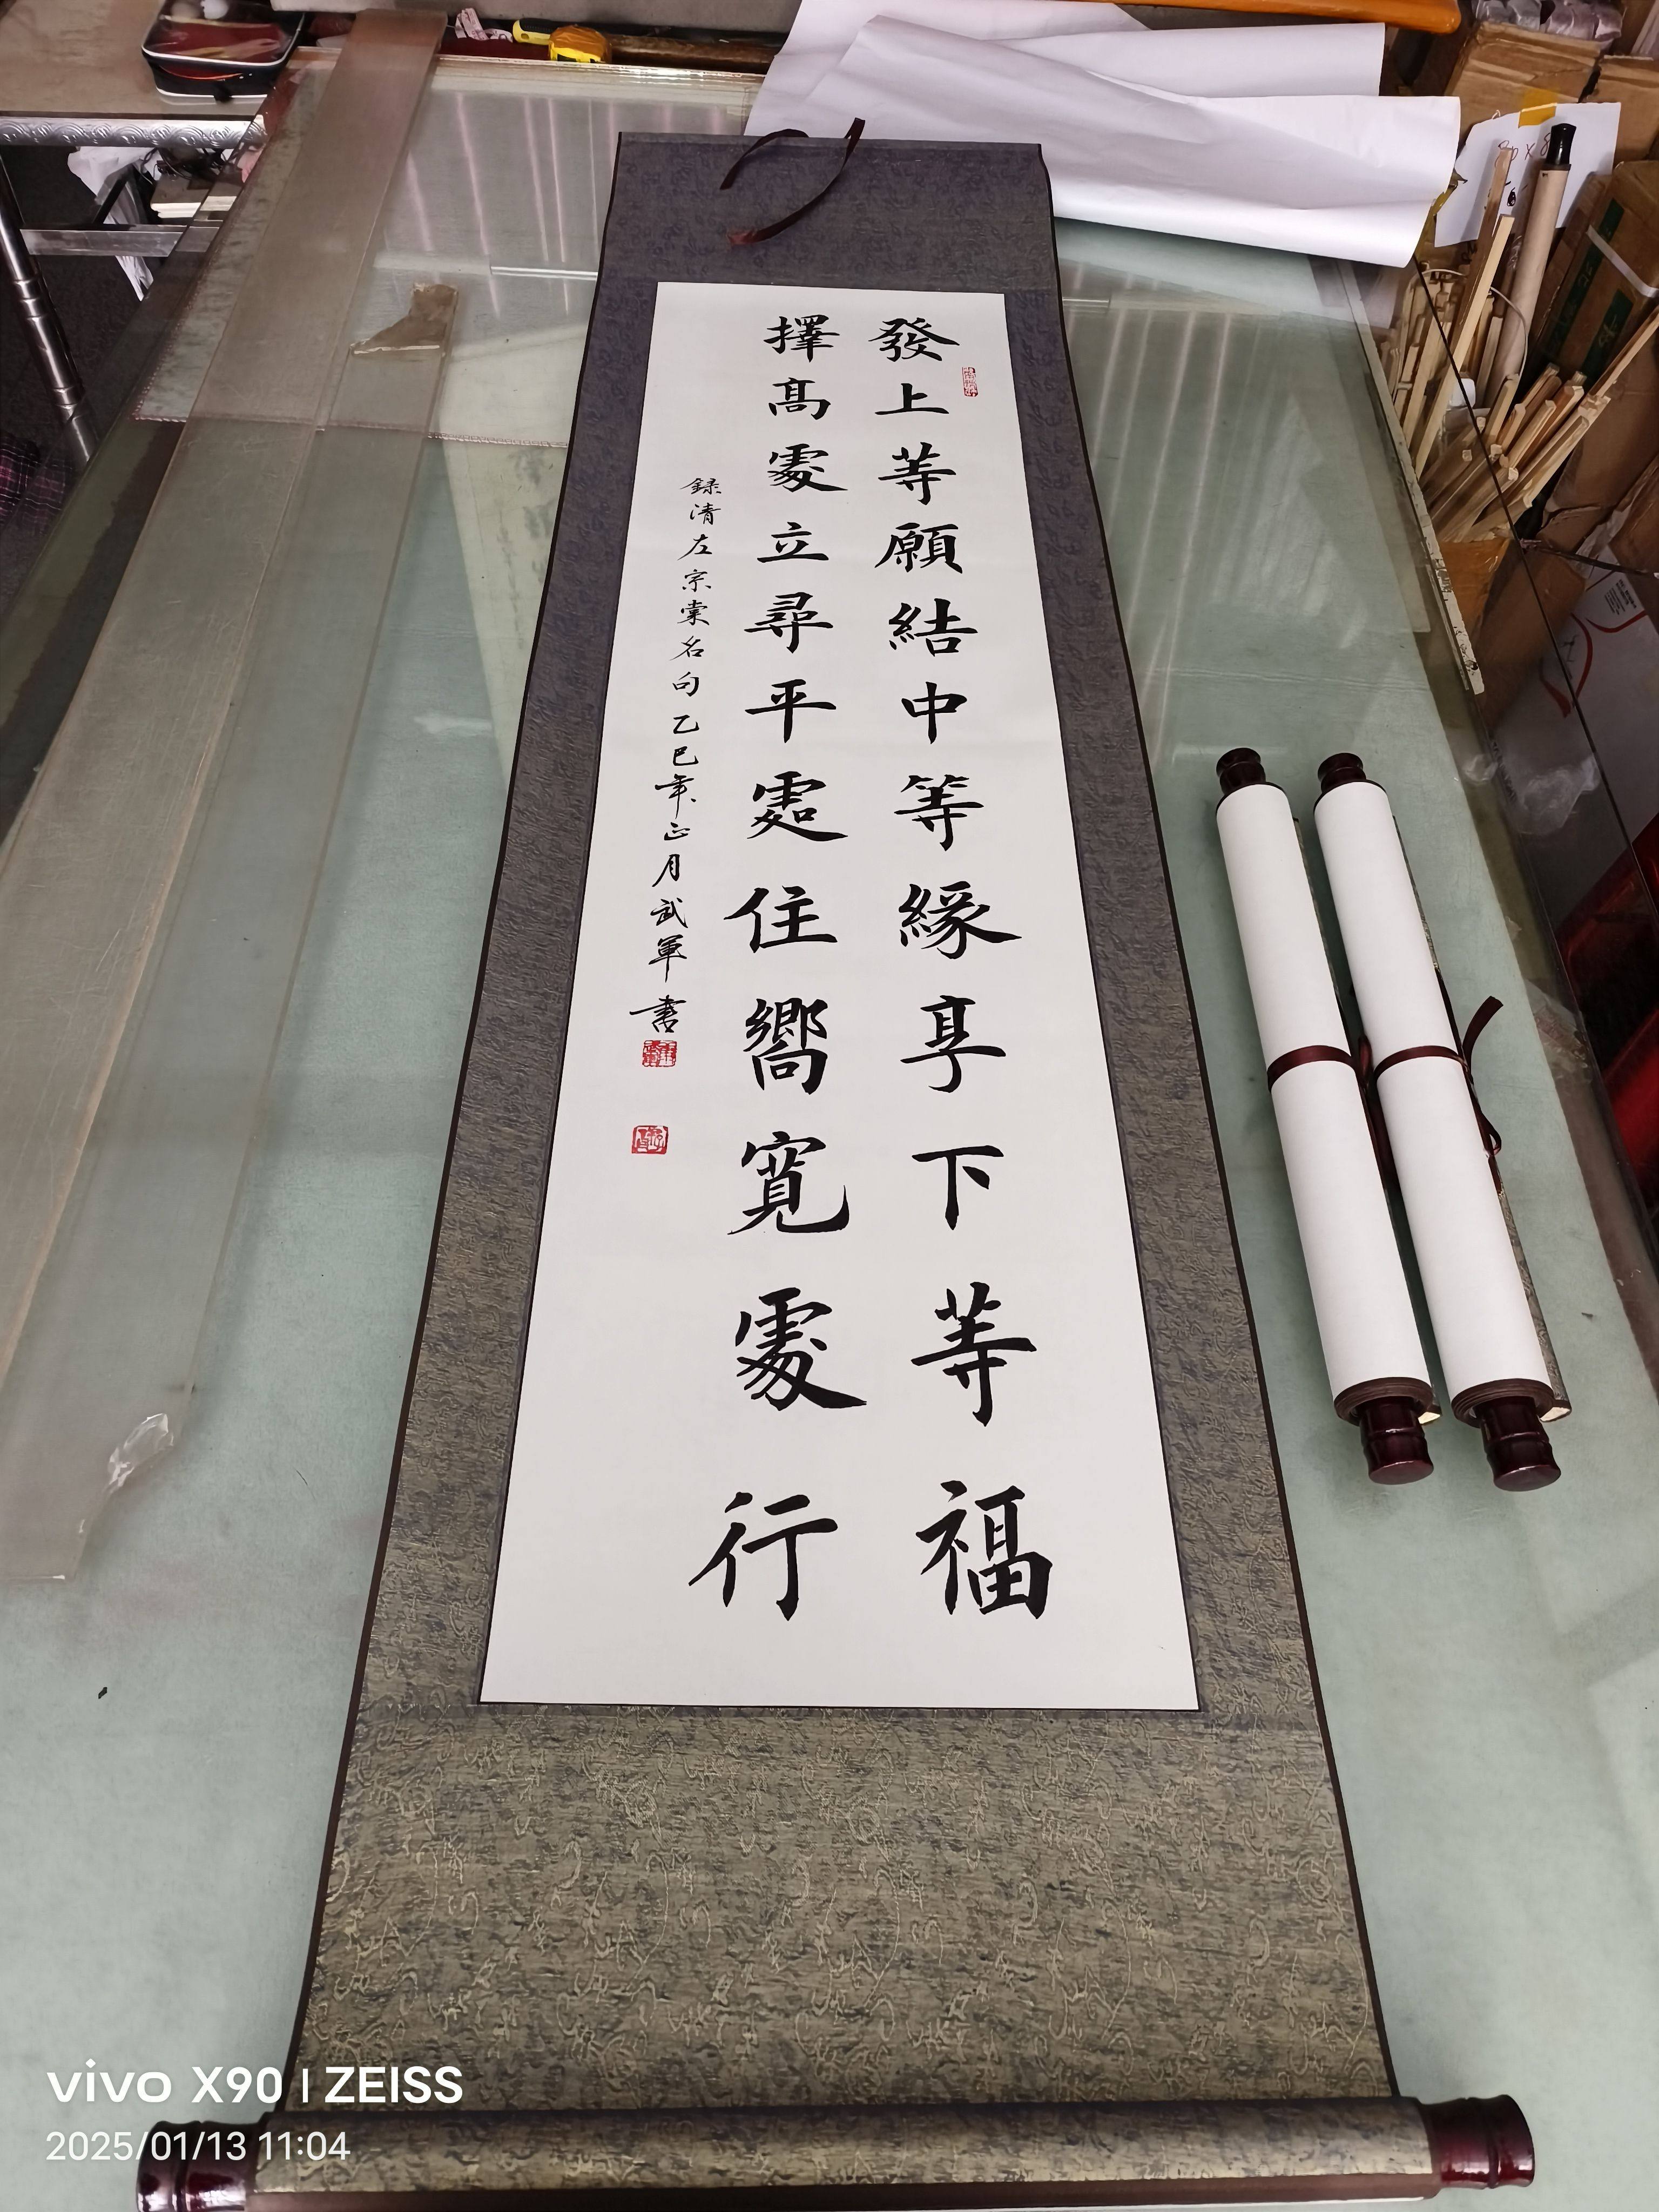 發上等願結中等緣享下等福
擇高處立尋平處住嚮寬處行
録清左宗棠名句乙巳年正月武軍書
vivo X90 | ZEISS
2025/01/13 11:04